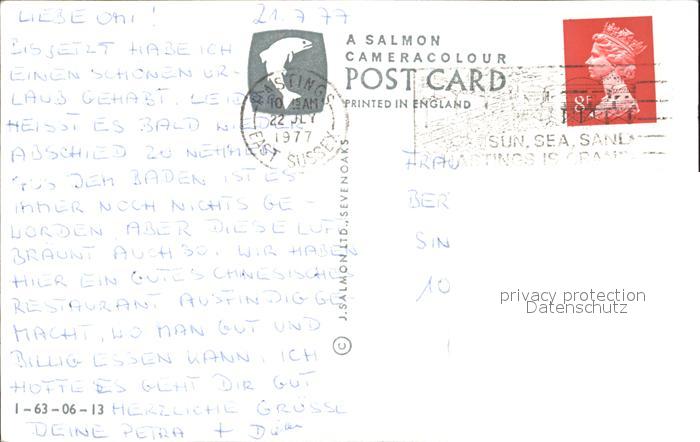 LIEBE OMI! 21.7.77
BIS JETZT HABE ICH
EINEN SCHÖNEN UR-
LAUB GEHABT. LEIDER
HEISST ES BALD WIEDER
ABSCHIED ZU NEHMEN.
AUS DEM BADEN IST ES
IMMER NOCH NICHTS GE-
WORDEN. ABER DIESE LUFT
BRÄUNT AUCH SO. WIR HABEN
HIER EIN GUTES CHINESISCHES
RESTAURANT AUSFINDIG GE-
MACHT, WO MAN GUT UND
BILLIG ESSEN KANN. ICH
HOFFE ES GEHT DIR GUT
1-63-06-13 HERZLICHE GRÜSSE
DEINE PETRA +
A SALMON
CAMERACOLOUR
POST CARD
PRINTED IN ENGLAND
© J. SALMON LTD., SEVENOAKS
HASTINGS
10 AM
22 JLY
1977
EAST SUSSEX
8P
SUN, SEA, SAND
HASTINGS IS GRAND
FRAU
BER
SIN
10
privacy protection
Datenschutz